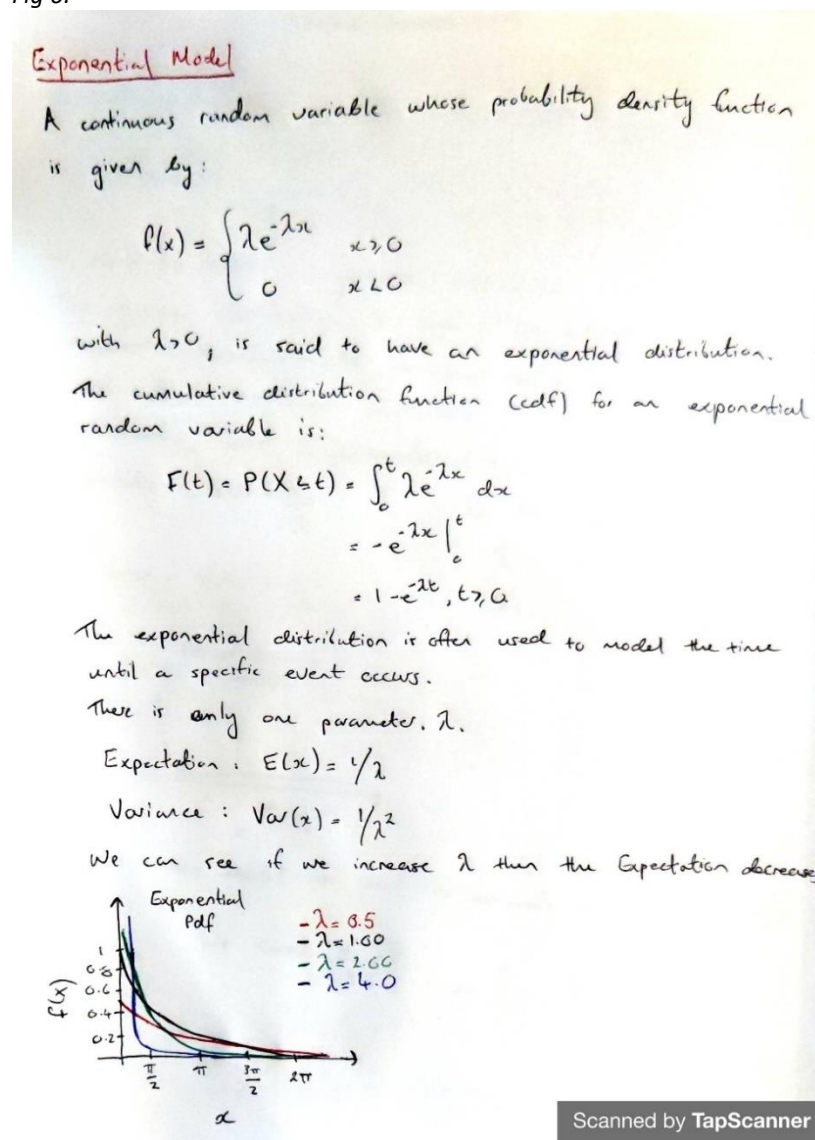 Exponential Model
A continuous random variable whose probability density function
is given by:
f(x) = { λe^-λx   x ≥ 0
0   x < 0
with λ>0, is said to have an exponential distribution.
The cumulative distribution function (cdf) for an exponential
random variable is:
F(t) = P(X ≤ t) = ∫₀ᵗ λe^-λx dx
= -e^-λx |₀ᵗ
= 1 - e^-λt, t ≥ 0
The exponential distribution is often used to model the time
until a specific event occurs.
There is only one parameter. λ.
Expectation : E(x) = 1/λ
Variance : Var(x) = 1/λ²
We can see if we increase λ then the Expectation decreases
Exponential
Pdf
- λ = 0.5
- λ = 1.00
- λ = 2.00
- λ = 4.0
f(x)
1
0.8
0.6
0.4
0.2
π/2   π   3π/2   2π
x
Scanned by TapScanner